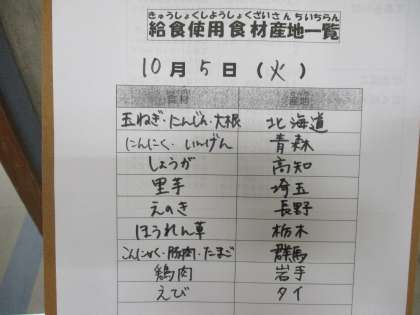 きゅうしょくしようしょくざいさんちいちらん
給食使用食材産地一覧
10月5日(火)
食材 産地
玉ねぎ・にんじん・大根 北海道
にんにく・いんげん 青森
しょうが 高知
里芋 埼玉
えのき 長野
ほうれん草 栃木
こんにゃく・豚肉・たまご 群馬
鶏肉 岩手
えび タイ